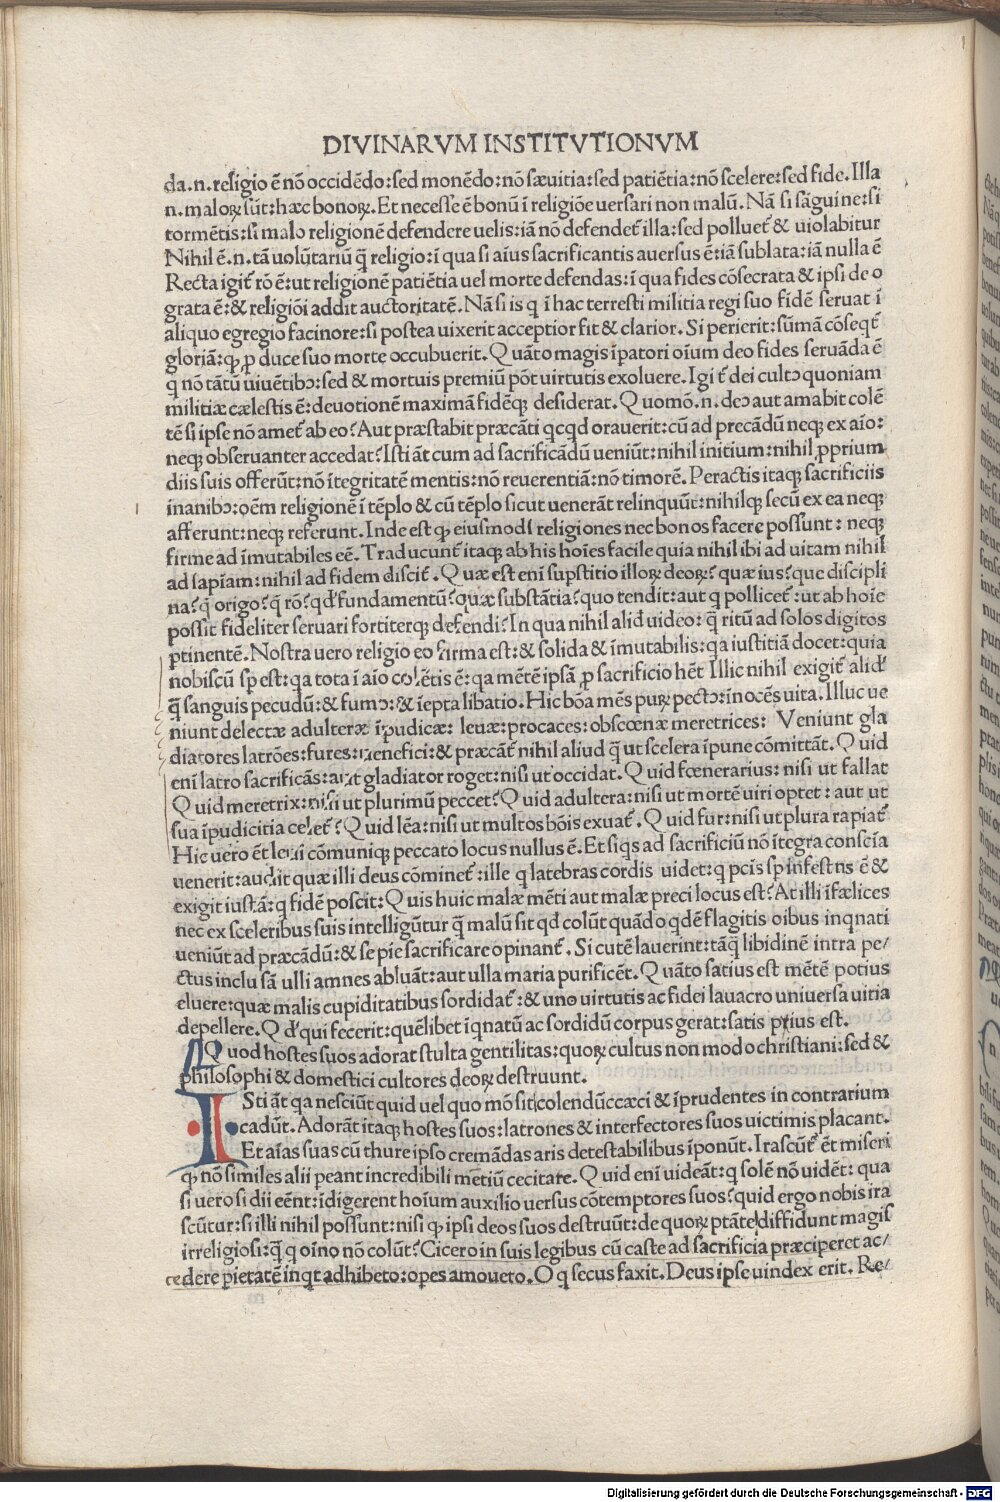 DIVINARVM INSTITVTIONVM
da.n.religio ē nō occidēdo:sed monēdo:nō sæuitia:sed patiētia:nō scelere:sed fide.Illa
n.maloꝝ sūt:hæc bonoꝝ.Et necesse ē bonū ī religiōe uersari non malū.Nā si sāguine:si
tormētis:si malo religionē defendere uelis:iā nō defendet᷑ illa:sed polluet᷑ & uiolabitur
Nihil ē.n.tā uolūtariū q̄ religio:ī qua si aīus sacrificantis auersus ē:iā sublata:iā nulla ē
Recta igit᷑ rō ē:ut religionē patiētia uel morte defendas:ī qua fides cōsecrata & ipsi deo
grata ē:& religiōi addit auctoritatē.Nā si is q ī hac terresti militia regi suo fidē seruat ī
aliquo egregio facinore:si postea uixerit acceptior fit & clarior.Si perierit:sūmā cōseqt᷑
gloriā:ꝙ ꝓ duce suo morte occubuerit.Quāto magis īpatori oīum deo fides seruāda ē
q nō tātū uiuētibꝫ:sed & mortuis premiū pōt uirtutis exoluere.Igit᷑ dei cultꝰ quoniam
militiæ cælestis ē:deuotionē maximā fidēqꝫ desiderat.Quomō.n.deꝰ aut amabit colē
tē si ipse nō amet᷑ ab eo?Aut præstabit præcāti qcqd orauerit:cū ad precādū neqꝫ ex aīo:
neqꝫ obseruanter accedat?Isti āt cum ad sacrificādū ueniūt:nihil initium:nihil ꝓprium
diis suis offerūt:nō ītegritatē mentis:nō reuerentiā:nō timorē.Peractis itaqꝫ sacrificiis
inanibꝫ:oēm religionē ī tēplo & cū tēplo sicut uenerāt relinquūt:nihilqꝫ secū ex ea neqꝫ
afferunt:neqꝫ referunt.Inde est ꝙ eiusmodi religiones nec bonos facere possunt: neqꝫ
firme ad īmutabiles eē.Traducunt᷑ itaqꝫ ab his hoīes facile quia nihil ibi ad uitam nihil
ad sapīam:nihil ad fidem discit᷑.Quæ est enī supstitio illoꝝ deoꝝ?quæ ius?que discipli
na?q̄ origo?q̄ rō?qd᷑ fundamentū?quæ substātia?quo tendit:aut q pollicet᷑:ut ab hoīe
possit fideliter seruari fortiterqꝫ defendi?In qua nihil alid uideo:q̄ ritū ad solos digitos
ꝑtinentē.Nostra uero religio eo firma est:& solida & īmutabilis:qa iustitiā docet:quia
nobiscū sp est:qa tota ī aīo colētis ē:qa mētē ipsā ꝓ sacrificio hēt Illic nihil exigit᷑ alid᷑
q̄ sanguis pecudū:& fumꝰ:& īepta libatio.Hic bōa mēs puꝝ pectꝰ:īnocēs uita.Illuc ue
niunt delectæ adulteræ īpudicæ: leuæ:procaces:obscœnæ meretrices: Veniunt gla
diatores latrōes:fures:uenefici:& præcāt᷑ nihil aliud q̄ ut scelera īpune cōmittāt.Quid
enī latro sacrificās:aut gladiator roget:nisi ut occidat.Quid fœnerarius: nisi ut fallat
Quid meretrix:nisi ut plurimū peccet?Quid adultera:nisi ut mortē uiri optet: aut ut
sua īpudicitia celet᷑?Quid lēa:nisi ut multos bōis exuat᷑.Quid fur:nisi ut plura rapiat᷑
Hic uero ēt leui cōmuniqꝫ peccato locus nullus ē.Et siqs ad sacrificiū nō ītegra conscīa
uenerit:audit quæ illi deus cōminet᷑:ille q latebras cordis uidet:q pcīs sp infestns ē &
exigit iustā:q fidē poscit:Quis huic malæ mēti aut malæ preci locus est?At illi īfælices
nec ex sceleribus suis intelligūtur q̄ malū sit qd colūt quādo qdē flagitis oibus inqnati
ueniūt ad præcādū:& se pie sacrificare opinant᷑.Si cutē lauerint:tāq̄ libidinē intra pe/
ctus inclusā ulli amnes abluāt:aut ulla maria purificēt.Quāto satius est mētē potius
eluere:quæ malis cupiditatibus sordidat᷑:& uno uirtutis ac fidei lauacro uniuersa uitia
depellere.Qd᷑ qui fecerit:quēlibet īqnatū ac sordidū corpus gerat:satis pius est.
Quod hostes suos adorat stulta gentilitas:quoꝝ cultus non modo christiani:sed &
philosophi & domestici cultores deoꝝ destruunt.
ISti āt qa nesciūt quid uel quo mō sit colendū:cæci & īprudentes in contrarium
cadūt.Adorāt itaqꝫ hostes suos:latrones & interfectores suos uictimis placant.
Et aīas suas cū thure ipso cremādas aris detestabilibus īponūt.Irascūt᷑ ēt miseri
ꝙ nō similes alii peant incredibili mētiū cecitate.Quid enī uideāt:q solē nō uidēt: qua
si uero si dii eēnt:īdigerent hoīum auxilio uersus cōtemptores suos?quid ergo nobis ira
scūtur:si illi nihil possunt:nisi ꝙ ipsi deos suos destruūt:de quoꝝ ptāte diffidunt magis
irreligiosi:q̄ q oīno nō colūt?Cicero in suis legibus cū caste ad sacrificia præciperet ac/
cedere pietatē inqt adhibeto:opes amoueto.O q secus faxit.Deus ipse uindex erit. Re/
Digitalisierung gefördert durch die Deutsche Forschungsgemeinschaft - DFG